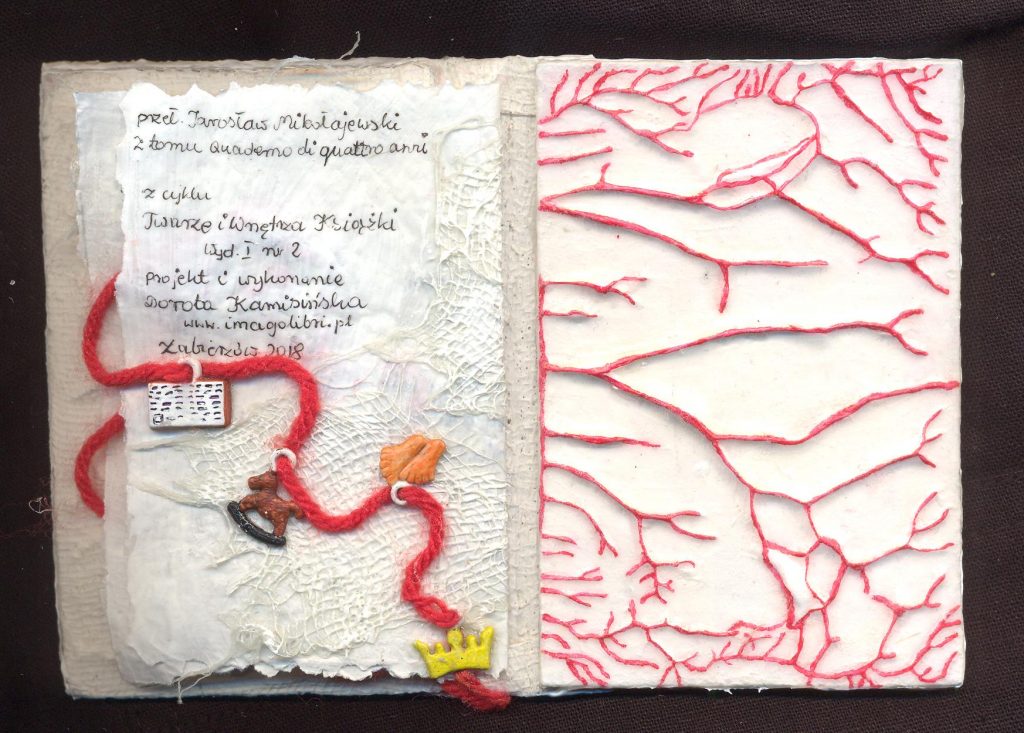 przeł. Jarosław Mikołajewski
z tomu Quaderno di quattro anni
z cyklu
Twarze i Wnętrza Książki
wyd. I nr 2
projekt i wykonanie
Dorota Kamisińska
www.imagolibri.pl
Zabierzów 2018